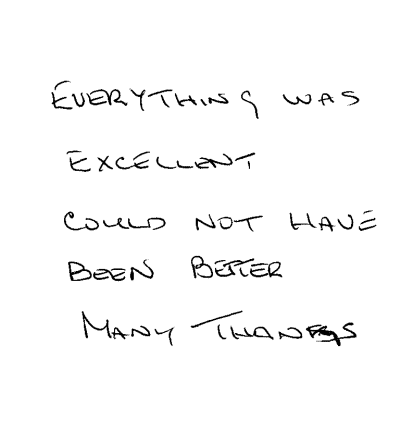 EVERYTHING WAS
EXCELLENT
COULD NOT HAVE
BEEN BETTER
MANY THANKS